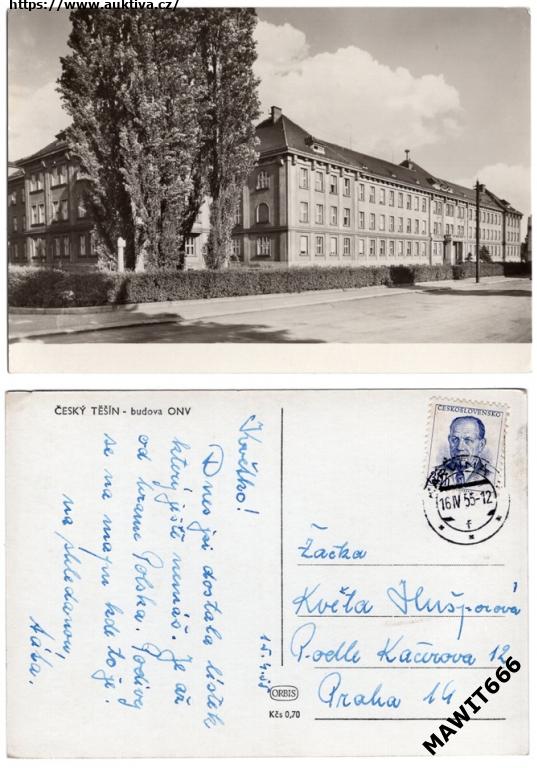 https://www.auktiva.cz/
ČESKÝ TĚŠÍN - budova ONV
Květko!
Dnes jsi dostala lístek
který ještě nemáš. Je až
od hranic Polska. Podívej
se na mapu kde to je.
na shledanou
15.4.55
ČESKOSLOVENSKO
16 IV 55-12
f
Žačka
Květa Hušporová
Podle Káčerova 12
Praha 14
ORBIS
Kčs 0,70
MAWIT666